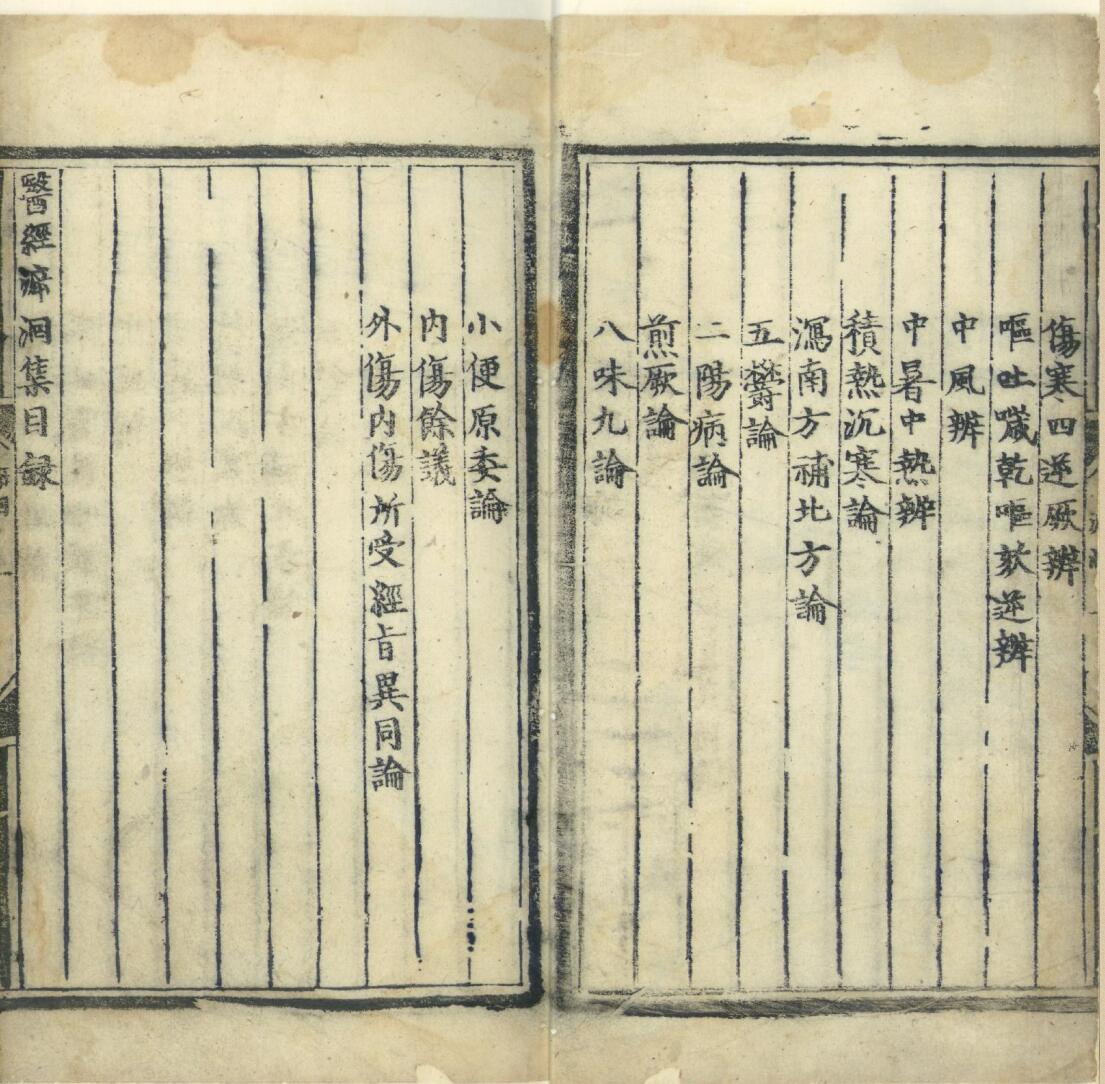 傷寒四逆厥辨
嘔吐噦乾嘔欬逆辨
中風辨
中暑中熱辨
積熱沉寒論
瀉南方補北方論
五鬱論
二陽病論
煎厥論
八味丸論
小便原委論
内傷餘議
外傷内傷所受經旨異同論
醫經溯洄集目録